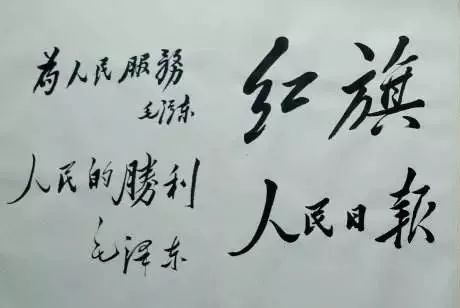 为人民服務
毛泽东
人民的勝利
毛泽东
红旗
人民日报